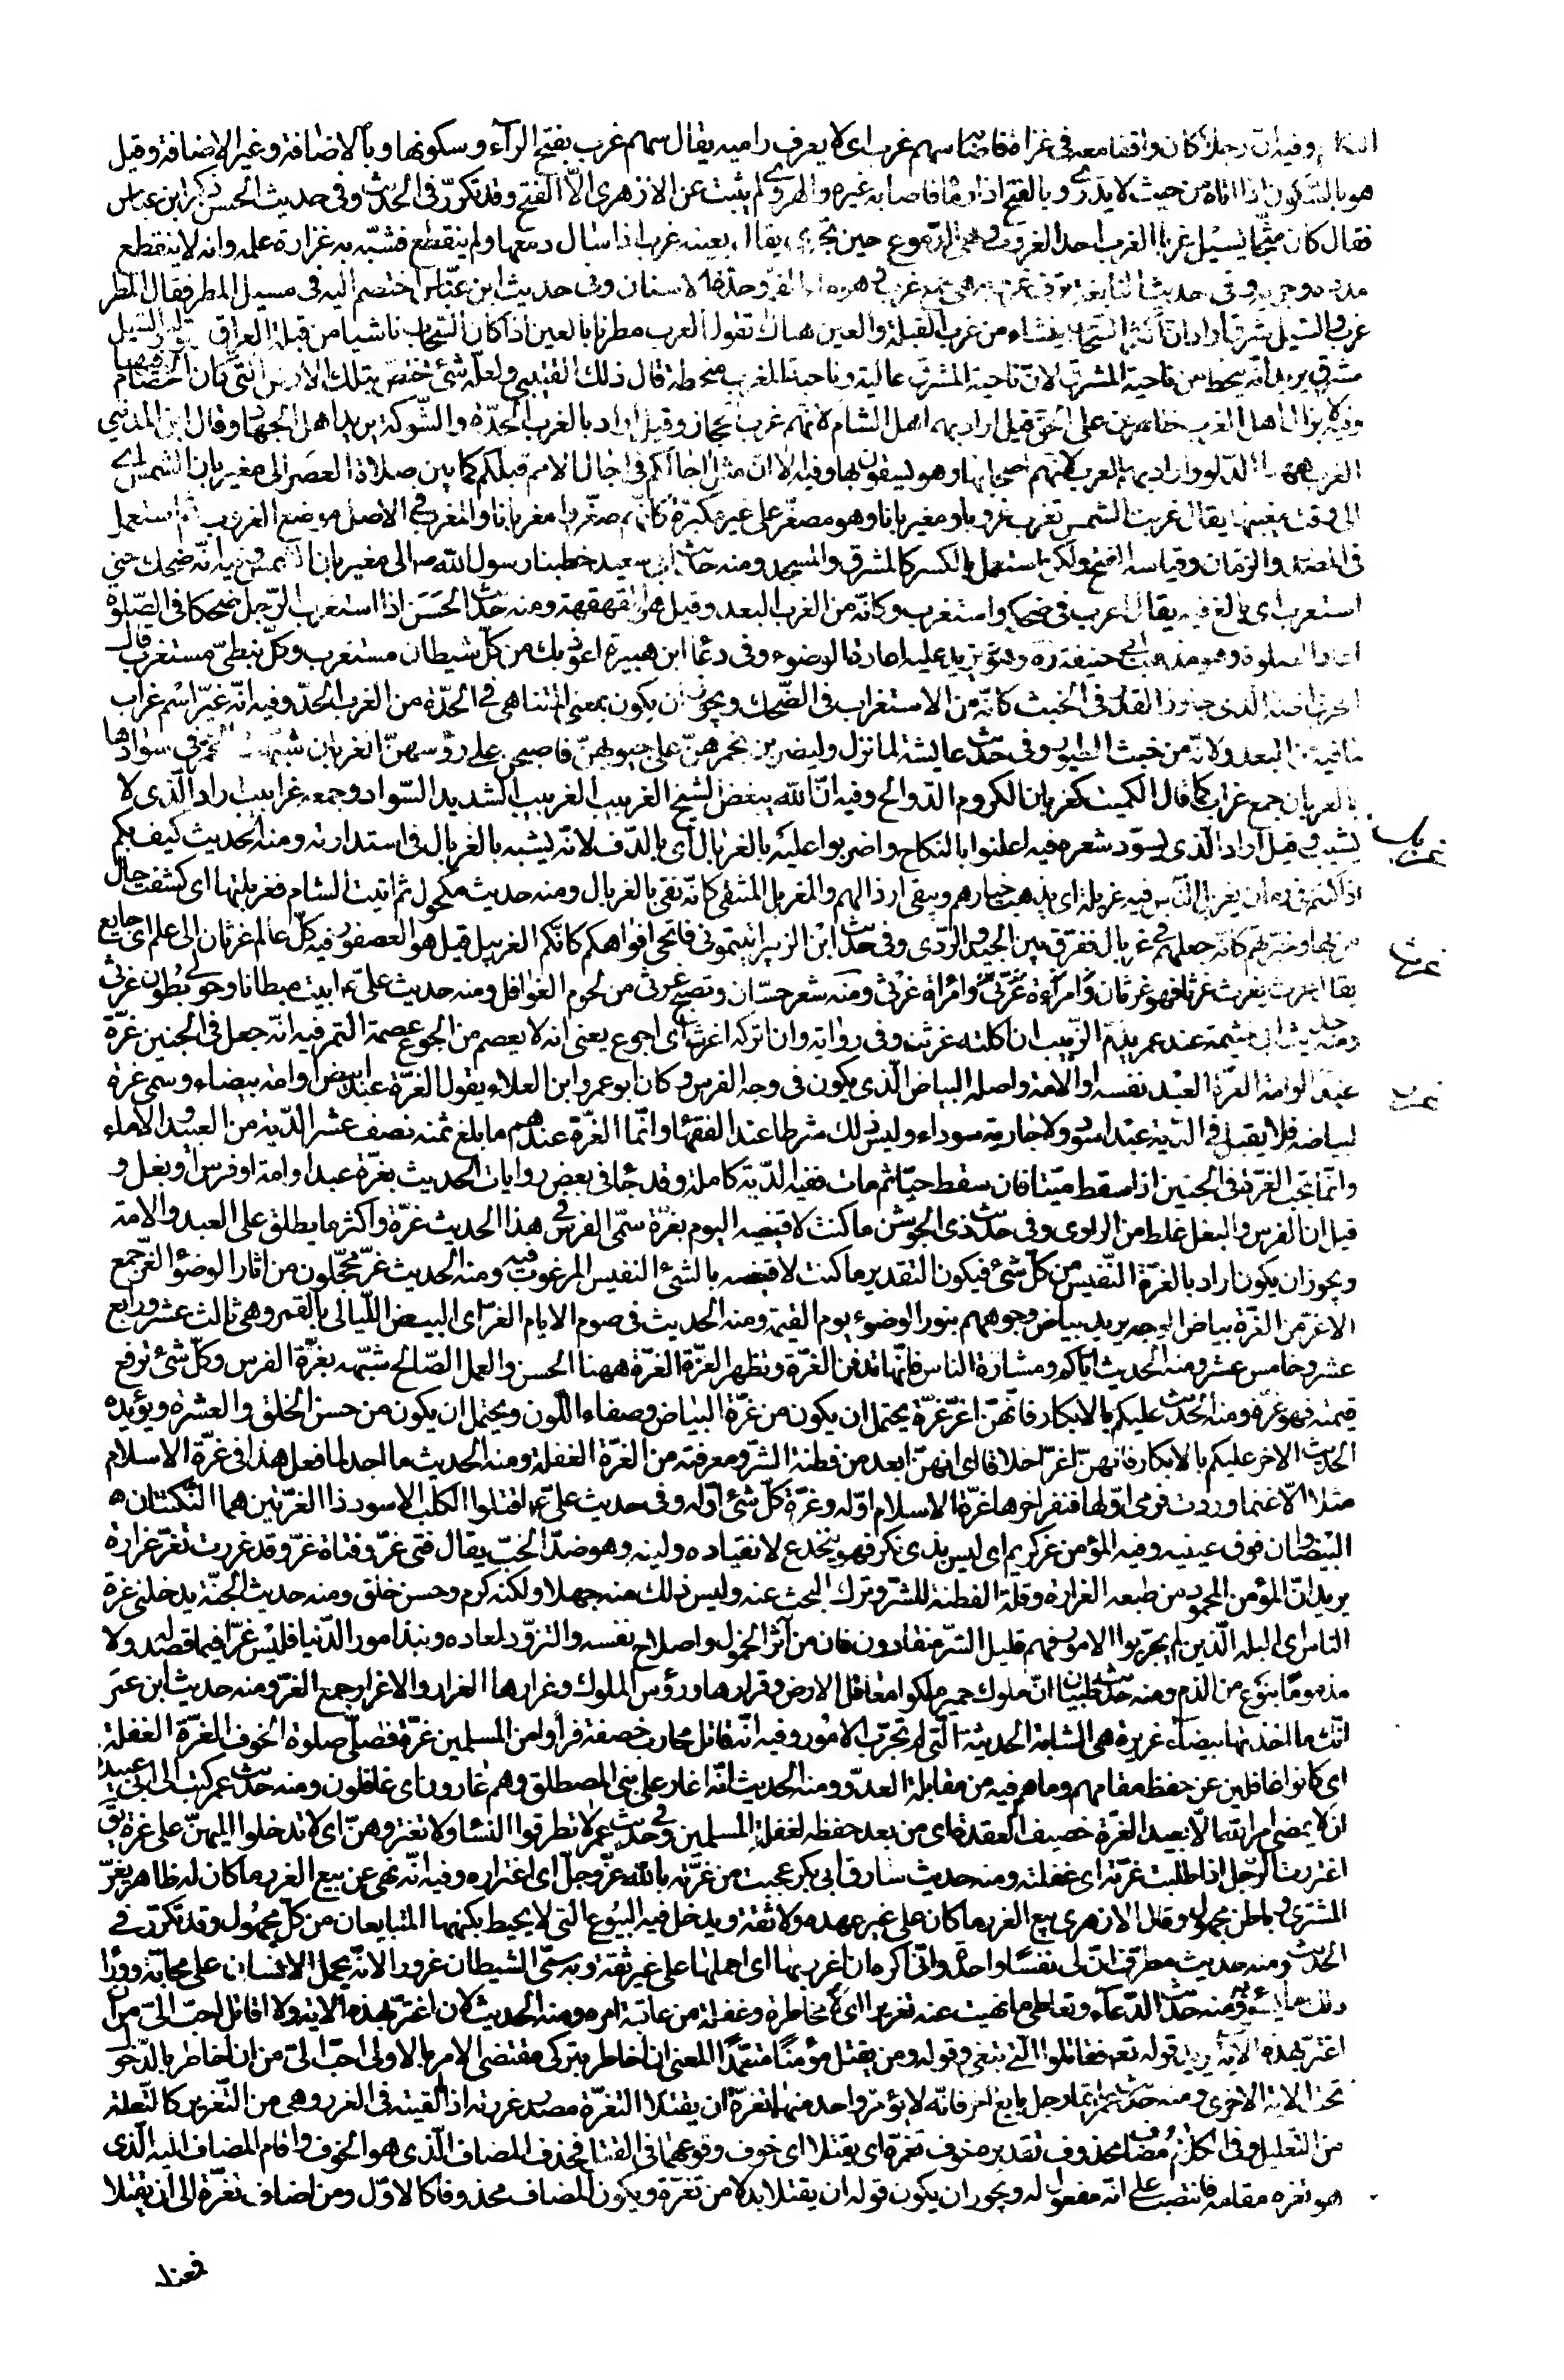 وفيه ان رجلا كان واقفا معه في غزاة فاصابه سهم غرب اى لا يعرف راميه يقال سهم غرب بفتح الرآء وسكونها وبالاضافة وغير الاضافة وقيل
هو بالسكون اذا اتاه من حيث لا يدرى وبالفتح اذا رماه فاصاب غيره والهروى لم يثبت عن الازهرى الا الفتح وقد تكرر فى الحديث وفى حديث الحسن ذكر ابن عباس
فقال كان مثجا يسيل غربا الغرب احد الغروب وهى الدموع حين تجرى يقال بعينه غرب اذا سال دمعها ولم ينقطع فشبه به غزارة علمه وانه لا ينقطع
مدده وجريه وفى حديث النابغة ترف غروبه هى جمع غرب وهو ماء الفم وحدة الاسنان وفى حديث ابن عباس اختصم اليه فى مسيل المطر فقال المطر
غرب والسيل شرق اراد ان اكثر السحاب ينشاء من غرب القبلة والعين هناك تقول العرب مطرنا بالعين اذا كان السحاب ناشيا من قبلة العراق وقوله والسيل
شرق يريد انه ينحط من ناحية المشرق لان ناحية المشرق عالية وناحية المغرب منحطة قال ذلك القتيبى ولعله شئ تختص بتلك الارض التى كان الخصام فيها
وفيه لا يزال اهل الغرب ظاهرين على الحق قيل اراد بهم اهل الشام لانهم غرب الحجاز وقيل اراد بالغرب الحدة والشوكة يريد اهل الجهاد وقال ابن المدينى
الغرب هيهنا الدلو واراد بهم العرب لانهم اصحابها وهم يستقون بها وفيه الا ان مثل اجالكم فى اجال الامم قبلكم كما بين صلاة العصر الى مغيربان الشمس اى
الى وقت مغيبها يقال غربت الشمس تغرب غروبا ومغيربانا وهو مصغر على غير مكبره كانهم صغروا مغربانا والمغرب فى الاصل موضع الغروب ثم استعمل
فى المصدر والزمان وقياسه الفتح ولكن استعمل بالكسر كالمشرق والمسجد ومنه حديث ابى سعيد خطبنا رسول الله ص الى مغيربان الشمس وفيه انه ضحك حتى
استغرب اى بالغ فيه يقال اغرب فى ضحكه واستغرب وكانه من الغرب البعد وقيل هو القهقهة ومنه حديث الحسن اذا استغرب الرجل ضحكا فى الصلوة
اعاد الصلوة وهو مذهب ابى حنيفة ره ويزيد عليه اعادة الوضوء وفى دعاء ابن هبيرة اعوذ بك من كل شيطان مستغرب وكل نبطى مستغرب قال
الحربى اظنه الذى جاوز القدر فى الخبث كانه من الاستغراب فى الضحك ويجوز ان يكون بمعنى المتناهى فى الحدة من الغرب الحد وفيه انه غير اسم غراب
لما فيه من البعد ولانه من خبث الطيور وفى حديث عايشة لما نزل وليضربن بخمرهن على جيوبهن فاصبحن على رؤسهن الغربان شبهت الخمر فى سوادها
بالغربان جمع غراب كما قال الكميت كغربان الكروم الدوالح وفيه ان الله يبغض الشيخ الغربيب الغربيب الشديد السواد وجمعه غرابيب اراد الذى لا
يشيب وقيل اراد الذى يسود شعره فيه اعلنوا بالنكاح واضربوا عليه بالغربال اى بالدف لانه يشبه بالغربال فى استدارته ومنه الحديث كيف بكم
اذا كنتم فى زمان يغربل الناس فيه غربلة اى يذهب خيارهم ويبقى ارذالهم والمغربل المنتقى كانه نقى بالغربال ومنه حديث مكحول ثم اتيت الشام فغربلتها اى كشفت حال
من بها وخبرتهم كانه جعلهم فى غربال ففرق بين الجيد والردى وفى حديث ابن الزبير اتيتمونى فاتحى افواهكم كانكم الغربيل قيل هو العصفور فيه كل عالم غرثان الى علم اى جايع
يقال غرث يغرث غرثا فهو غرثان وامراءة غرثى وامراة غرثى ومنه شعر حسان وتصبح غرثى من لحوم الغوافل ومنه حديث على ع ابيت مبطانا وحولى بطون غرثى
ومنه حديث ابى خيثمة عند عمر يذم الزبيب ان اكلته غرثت وفى رواية وان اتركه اغرث اى اجوع يعنى انه لا يعصم من الجوع عصمة التمر فيه انه جعل فى الجنين غرة
عبدا او امة الغرة العبد نفسه او الامة واصله البياض الذى يكون فى وجه الفرس وكان ابو عمرو ابن العلاء يقول الغرة عبد ابيض او امة بيضاء وسمى غرة
لبياضه فلا يقبل فى الدية عبد اسود ولا جارية سوداء وليس ذلك شرطا عند الفقهاء وانما الغرة عندهم ما بلغ ثمنه نصف عشر الدية من العبيد والاماء
وانما تجب الغرة فى الجنين اذا سقط ميتا فان سقط حيا ثم مات ففيه الدية كاملة وقد جاء فى بعض روايات الحديث بغرة عبد او امة او فرس او بغل و
قيل ان الفرس والبغل غلط من الراوى وفى حديث ذى الجوشن ما كنت لاقيضه اليوم بغرة سمى الفرس فى هذا الحديث غرة واكثر ما يطلق على العبد والامة
ويجوز ان يكون اراد بالغرة النفيس من كل شئ فيكون التقدير ما كنت لاقيضه بالشئ النفيس المرغوب فيه ومنه الحديث غر محجلون من اثار الوضوء الغر جمع
الاغر من الغرة بياض الوجه يريد بياض وجوههم بنور الوضوء يوم القيمة ومنه الحديث فى صوم الايام الغر اى البيض الليالى بالقمر وهى ثالث عشر ورابع
عشر وخامس عشر ومنه الحديث اياكم ومشارة الناس فانها تدفن الغرة وتظهر العرة الغرة ههنا الحسن والعمل الصالح شبهه بغرة الفرس وكل شئ ترفع
قيمته فهو غرة ومنه الحديث عليكم بالابكار فانهن اغر غرة يحتمل ان يكون من غرة البياض وصفاء اللون ويحتمل ان يكون من حسن الخلق والعشرة ويؤيده
الحديث الاخر عليكم بالابكار فانهن اغر اخلاقا اى انهن ابعد من فطنة الشر ومعرفته من الغرة الغفلة ومنه الحديث ما اجد لما فعل هذا فى غرة الاسلام
مثلا الا غنما وردت فرمى اولها فنفر اخرها غرة الاسلام اوله وغرة كل شئ اوله وفى حديث على ع اقتلوا الكلب الاسود ذا الغرتين هما النكتتان
البيضاوان فوق عينيه وفيه المؤمن غر كريم اى ليس بذى نكر فهو ينخدع لانقياده ولينه وهو ضد الخب يقال فتى غر وفتاة غر وقد غررت تغر غرارة
يريد ان المؤمن المحمود من طبعه الغرارة وقلة الفطنة للشر وترك البحث عنه وليس ذلك منه جهلا ولكنه كرم وحسن خلق ومنه حديث الجنة يدخلنى غرة
الناس اى البله الذين لم يجربوا الامور فهم قليل الشر منقادون فان من آثر الخمول واصلاح نفسه والتزود لمعاده ونبذ امور الدنيا فليس غرا فيما قصد له ولا
مذموما بنوع من الذم ومنه حديث ظبيان ان ملوك حمير ملكوا معاقل الارض وقرارها ورؤس الملوك وغرارها الغرار والاغرار جمع الغر ومنه حديث ابن عمر
انك ما اخذتها بيضاء غريرة هى الشابة الحديثة التى لم تجرب الامور وفيه انه قاتل محارب خصفة فرأوا من المسلمين غرة فصلى صلوة الخوف الغرة الغفلة
اى كانوا غافلين عن حفظ مقامهم وما هم فيه من مقابلة العدو ومنه الحديث انه اغار على بنى المصطلق وهم غارون اى غافلون ومنه حديث عمر كتب الى ابى عبيدة
ان لا يمضى امر الله الا بعيد الغرة حصيف العقدة اى من بعد حفظه لغفلة المسلمين وفى حديث عمر لا تطرقوا النساء ولا تغتروهن اى لا تدخلوا اليهن على غرة يق
اغتررت الرجل اذا طلبت غرته اى غفلته ومنه حديث سارق ابى بكر عجبت من غرته بالله عز وجل اى اغتراره وفيه انه نهى عن بيع الغرر ما كان له ظاهر يغر
المشترى وباطن مجهول وقال الازهرى بيع الغرر ما كان على غير عهدة ولا ثقة ويدخل فيه البيوع التى لا يحيط بكنهها المتبايعان من كل مجهول وقد تكرر فى
الحديث ومنه حديث مطرف ان لى نفسا واحدة وانى اكره ان اغرر بها اى احملها على غير ثقة وبه سمى الشيطان غرورا لانه يحمل الانسان على محابه ووراء
ذلك ما يسوءه ومنه حديث الدعاء وتعاطى ما نهيت عنه تغريرا اى مخاطرة وغفلة من عاقبة امره ومنه الحديث لان اغتر بهذه الاية ولا اقاتل احب الى من ان
اغتر بهذه الاية يريد قوله تعـ فقاتلوا التى تبغى وقوله ومن يقتل مؤمنا متعمدا المعنى ان اخاطر بتركى مقتضى الامر بالاولى احب الى من ان اخاطر بالدخول
تحت الاية الاخرى ومنه حديث عمر ايما رجل بايع اخر فانه لا يؤمر واحد منهما تغرة ان يقتلا التغرة مصدر غررته اذا القيته فى الغرر وهى من التغرير كالتعلة
من التعليل وفى الكلام مضاف محذوف تقديره خوف تغرة ان يقتلا اى خوف وقوعهما فى القتل فحذف المضاف الذى هو الخوف واقام المضاف اليه الذى
هو تغرة مقامه فانتصب على انه مفعول له ويجوز ان يكون قوله ان يقتلا بدلا من تغرة ويكون المضاف محذوفا كالاول ومن اضاف تغرة الى ان يقتلا
فمعناه
غربل
غرث
غرر